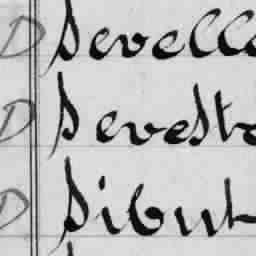 D Sevella
D Sevesto
D Sibut